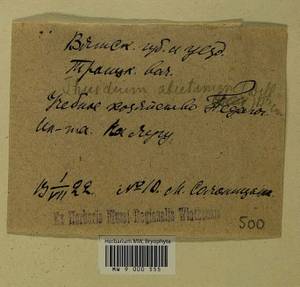 Вятск. губ. и уезд.
Троицк. вол.
Thuidium abietinum
Учебное хозяйство Педагог.
Ин-та. На лугу.
19 1/VII 22. №10. М.
Ex Herbario Musei Regionalis Wiatkensis
500
Herbarium MW, Bryophyta
MW 9 000 555